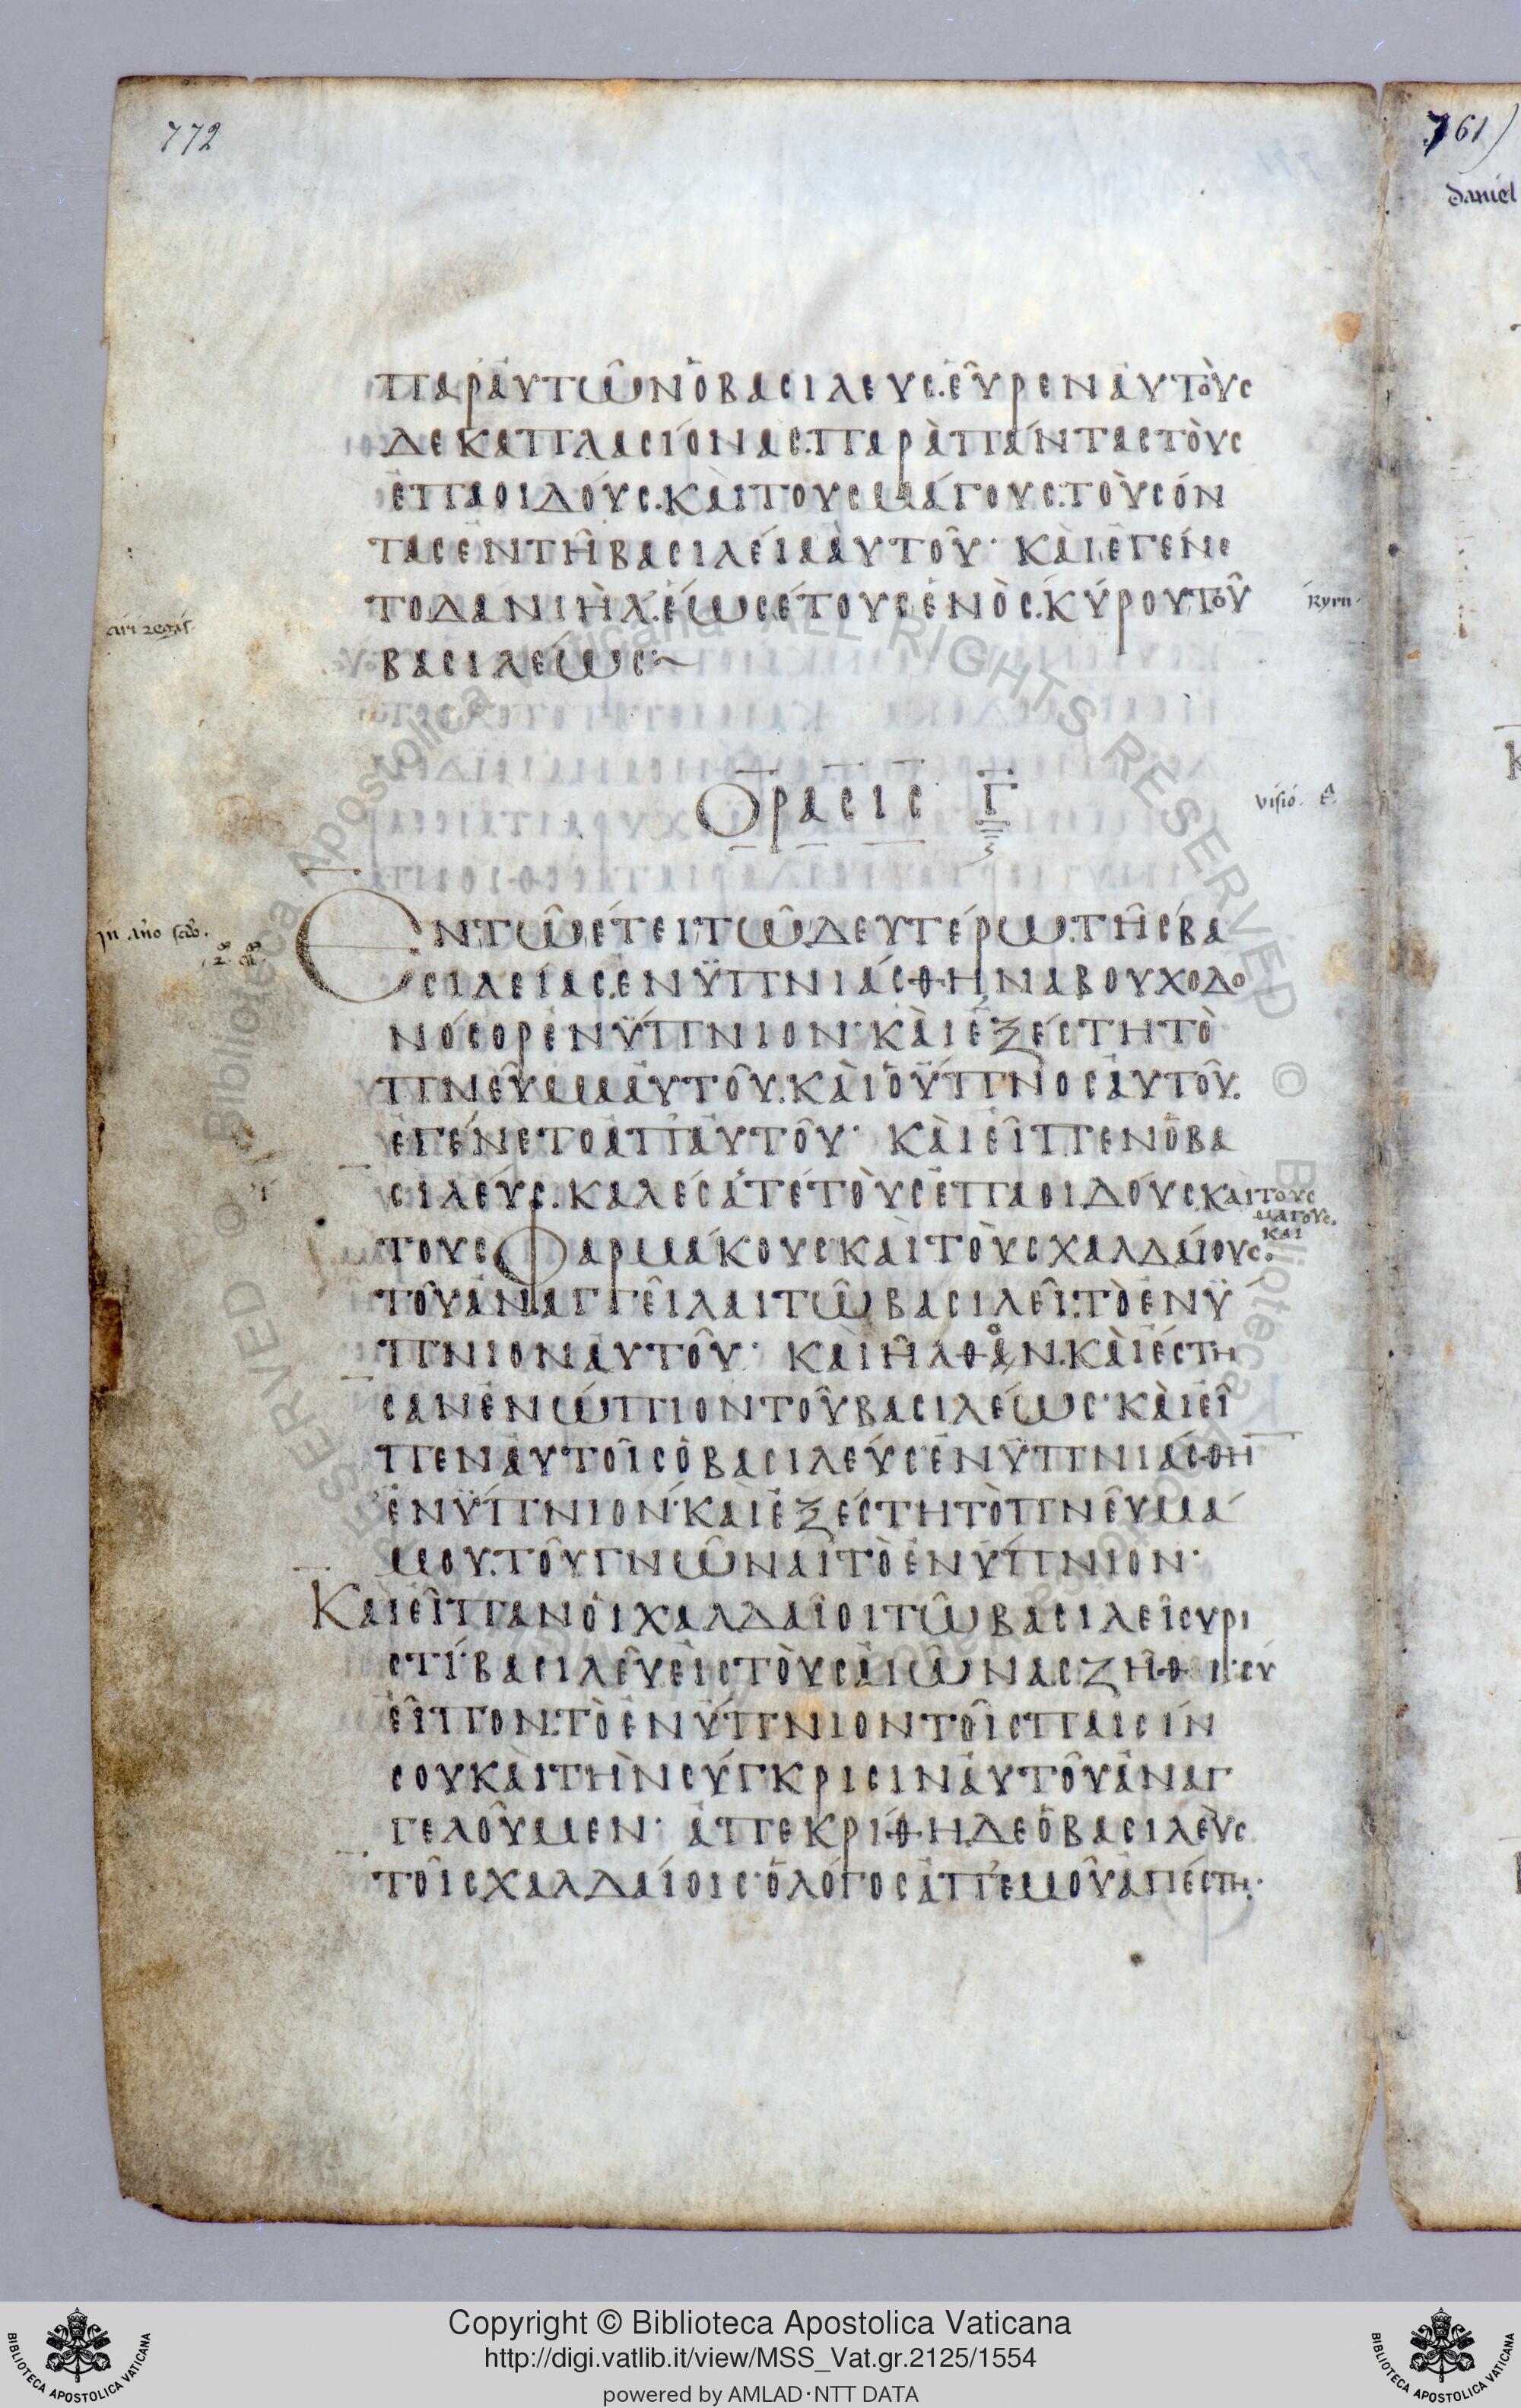 772
761)
daniel
παρἀυτῶνὁβασιλευς.ἑῦρενἀυτὸυς
δεκαπλασιόνας.παρὰπάνταςτὸυς
ἐπαοιδόυς.κὰιτουςμάγους.τὸυςόν
ταςἐντῆβασιλέιαἀυτοῦ· κὰιἐγένε
τοδανιὴλ.ἑώςέτουςἑνὸς.κύρουτοῦ
βασιλέως:~
Kyru
Ὅρασις Γ
visió.
Ἐντῶέτειτῶδευτέρω.τῆςβα
σιλείας.ἐνϋπνιάσθηναβουχοδο
νόσορἐνϋπνιον·κὰιἐξέστητὸ
πνεῦμαἀυτοῦ.κὰιὁϋπνοςἀυτοῦ.
ἐγένετοἀπἀυτοῦ· κὰιεῖπενὁβα
σιλέυς.καλέσἀτέτὸυςἐπαοιδόυςκαὶτους
μαγους.
και
τουςφαρμάκουςκὰιτὸυςχαλδάιους.
τοῦἀναγγεῖλαιτῶβασιλεῖ.τὸἐνϋ
πνιονἀυτοῦ· κὰιῆλθον.κὰιέστη
σανἐνώπιοντοῦβασιλέως·κὰιεῖ
πενἀυτοῖςὁβασιλέυςἐνϋπνιάσθη
ἐνϋπνιον·κὰιἐξέστητὸπνεῦμά
μου.τοῦγνῶναιτὸἐνϋπνιον·
Κὰιεῖπανὁιχαλδαῖοιτῶβασιλεῖσυρι
στί·βασιλεῦἐιςτὸυςἀιῶναςζῆθι·σύ
εῖπον.τὸἐνϋπνιοντοῖςπαισίν
σουκὰιτὴνσύγκρισινἀυτοῦἀναγ
γελοῦμεν· ἀπεκρίθηδεὁβασιλὲυς
τοῖςχαλδάιοις·ὁλόγοςἀπἐμοῦἀπέστη·
Copyright © Biblioteca Apostolica Vaticana
http://digi.vatlib.it/view/MSS_Vat.gr.2125/1554
powered by AMLAD·NTT DATA
BIBLIOTECA APOSTOLICA VATICANA
BIBLIOTECA APOSTOLICA VATICANA